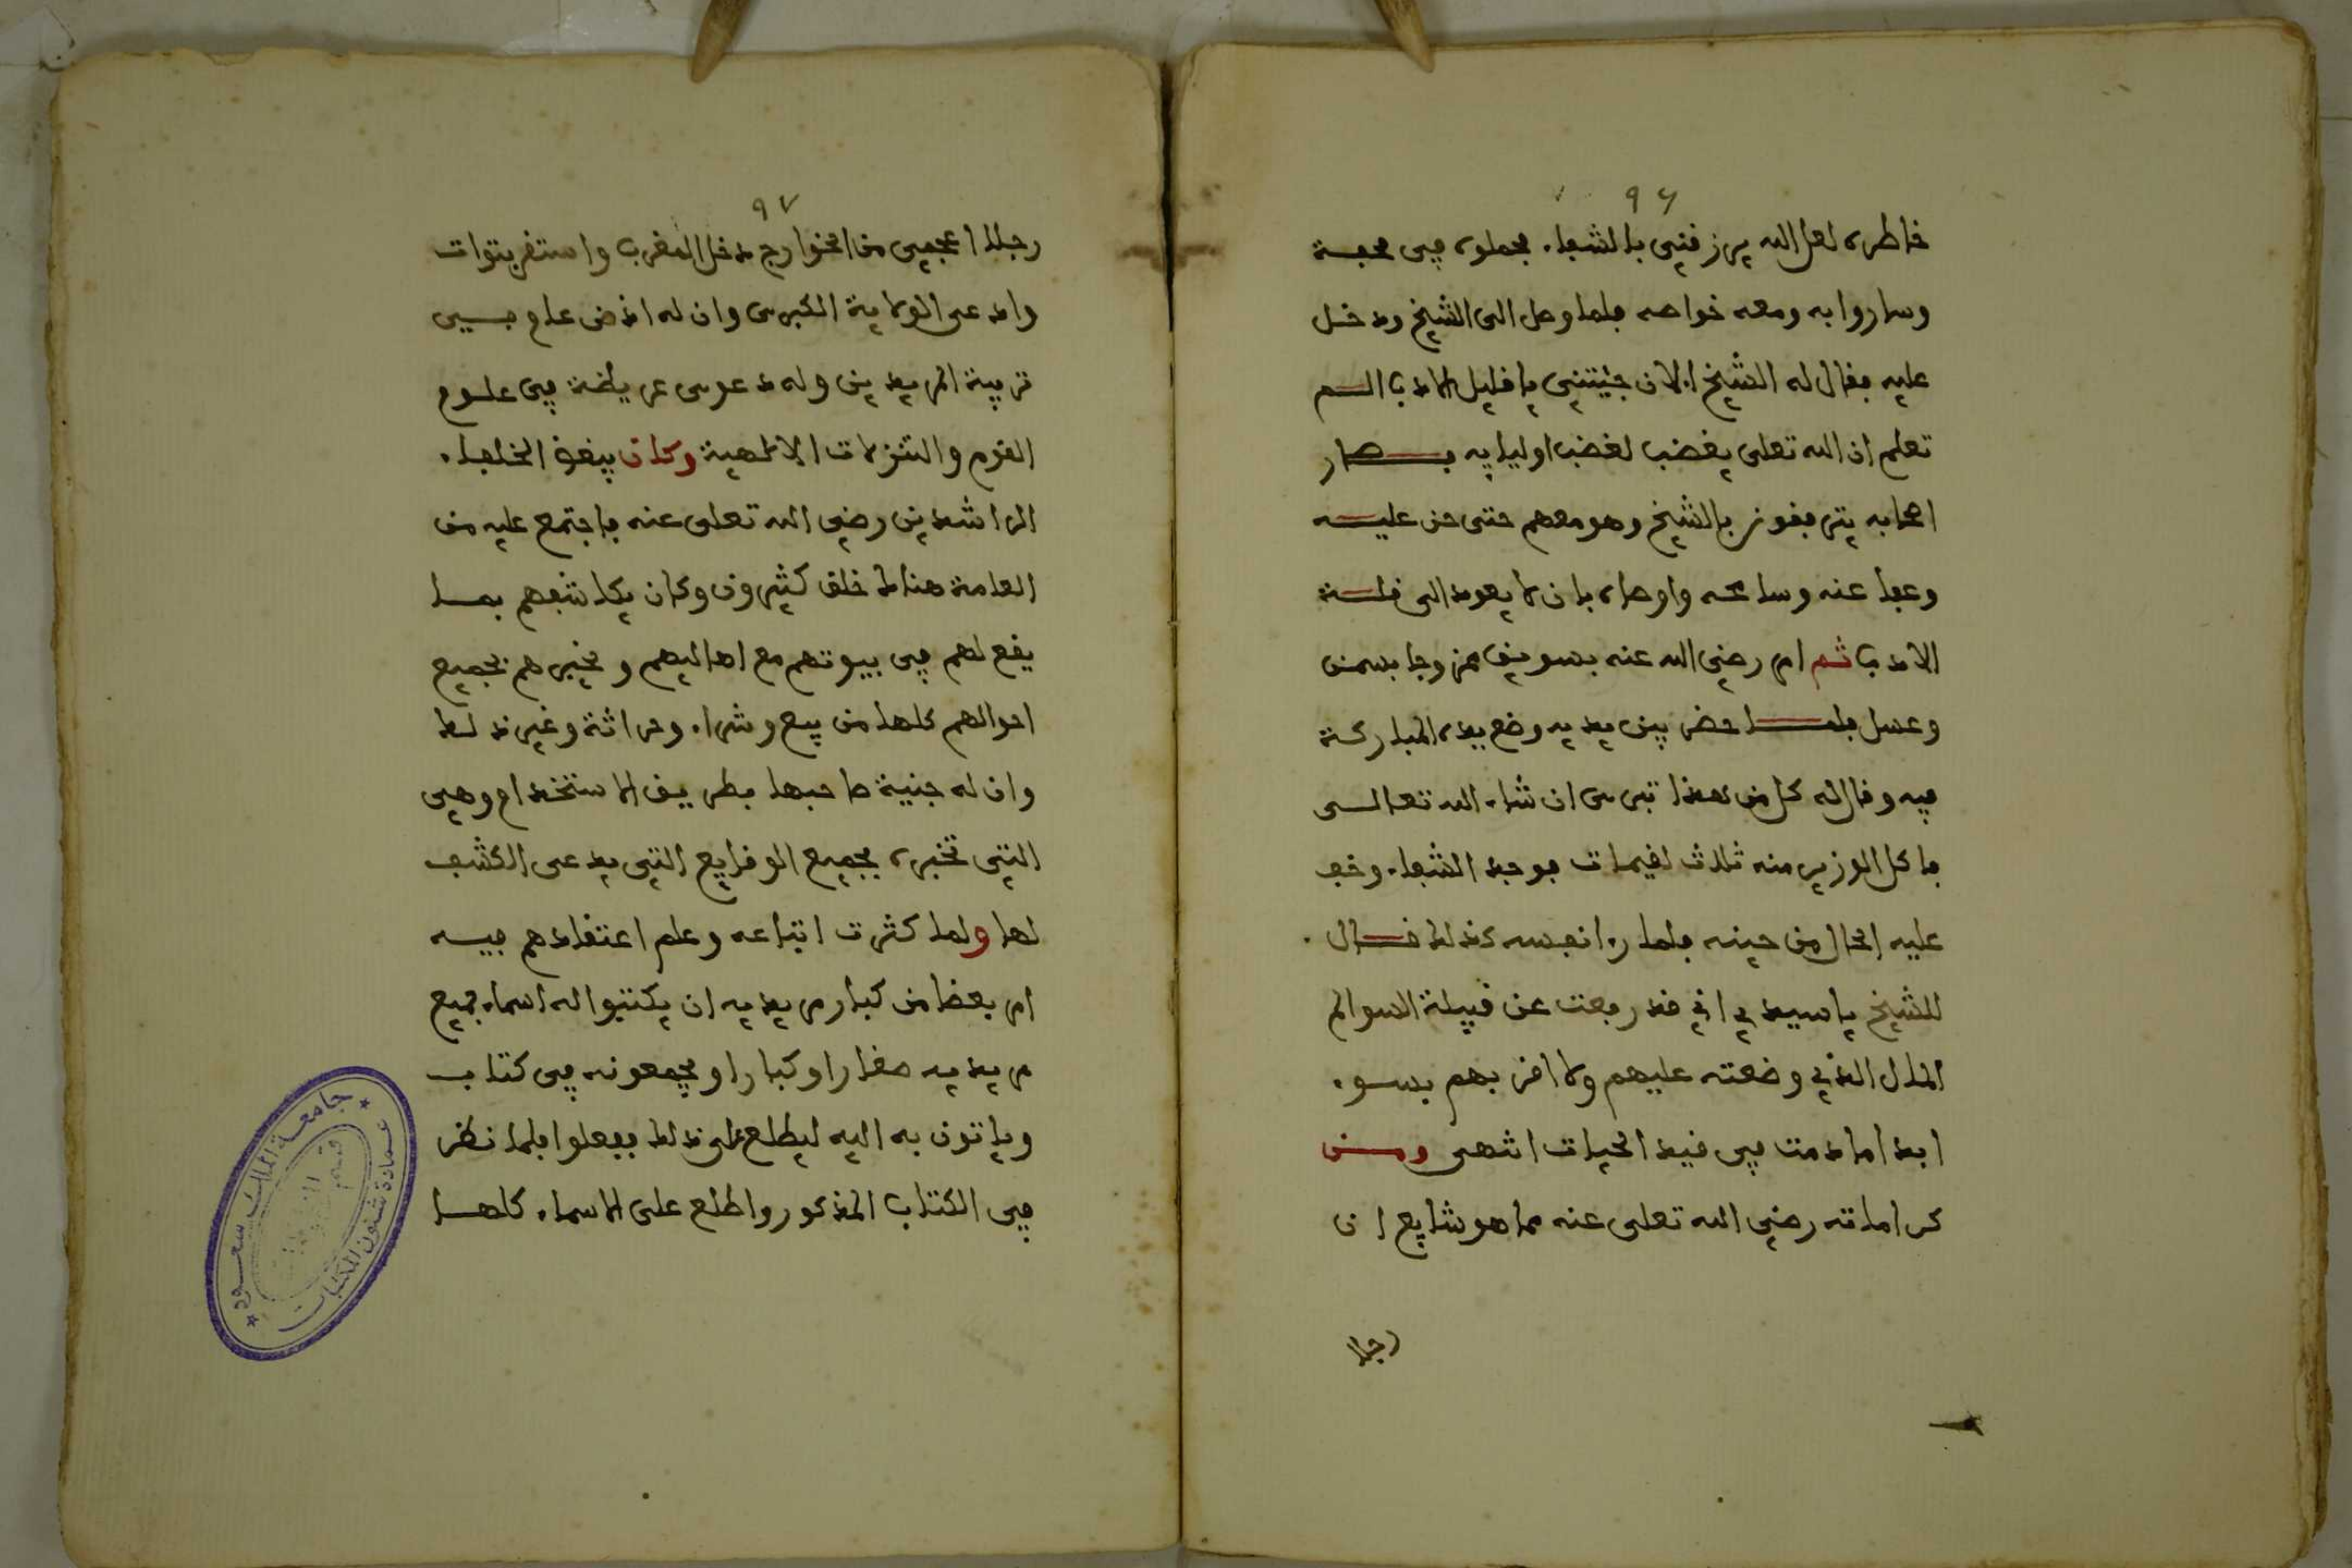 ٩٦
خاطره لعل الله يرزقني بالشفاء فحملوه في محبة
وساروا به ومعه خواصه فلما وصل الى الشيخ ودخل
عليه فقال له الشيخ الان جئتني يا قليل الادب الم
تعلم ان الله تعلى يغضب لغضب اوليايه فصار
اصحابه يترفقون بالشيخ وهو معهم حتى حن عليه
وعفا عنه وسامحه واوصاه بان لا يعود الى قلة
الادب ثم امر رضي الله عنه بسويق ممزوجا بسمن
وعسل فلما حضر بين يديه وضع يده المباركة
فيه وقال له كل من هذا تبرى ان شاء الله تعالى
فاكل الوزير منه ثلاث لقيمات فوجد الشفاء وخف
عليه الحال من حينه فلما را نفسه كذلك قال
للشيخ يا سيدي اني قد رفعت عن قبيلة السوالم
المال الذي وضعته عليهم ولا اقربهم بسوء
ابدا ما دمت في قيد الحيات انتهى ومن
كراماته رضي الله تعلى عنه مما هو شايع ان
رجلا
٩٧
رجلا اعجمي من الخوارج دخل المغرب واستقر بتوات
وادعى الولاية الكبرى وان له اذن عام في
تربية المريدين وله دعوى عريضة في علوم
القوم والتنزلات الالاهية وكان يبغض الخلفاء
الراشدين رضي الله تعلى عنه فاجتمع عليه من
العامة هناك خلق كثيرون وكان يكاشفهم بما
يقع لهم في بيوتهم مع اهاليهم ويخبرهم بجميع
احوالهم كلها من بيع وشراء وحراثة وغير ذلك
وان له جنية صاحبها بطريق الاستخدام وهي
التي تخبره بجميع الوقايع التي يدعى الكشف
لها ولما كثرت اتباعه وعلم اعتقادهم فيه
امر بعضا من كبار مريديه ان يكتبوا له اسماء جميع
مريديه صغارا وكبارا ويجمعونه في كتاب
وياتون به اليه ليطلع على ذلك ففعلوا فلما نظر
في الكتاب المذكور واطلع على الاسماء كلها
جامعة الملك سعود
عمادة شئون المكتبات
قسم